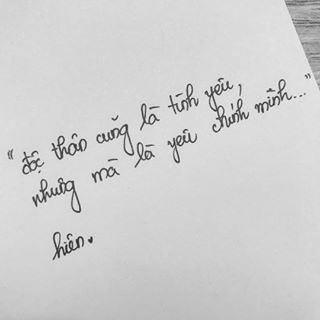 "độc thân cũng là tình yêu,
nhưng mà là yêu chính mình..."
hiên.